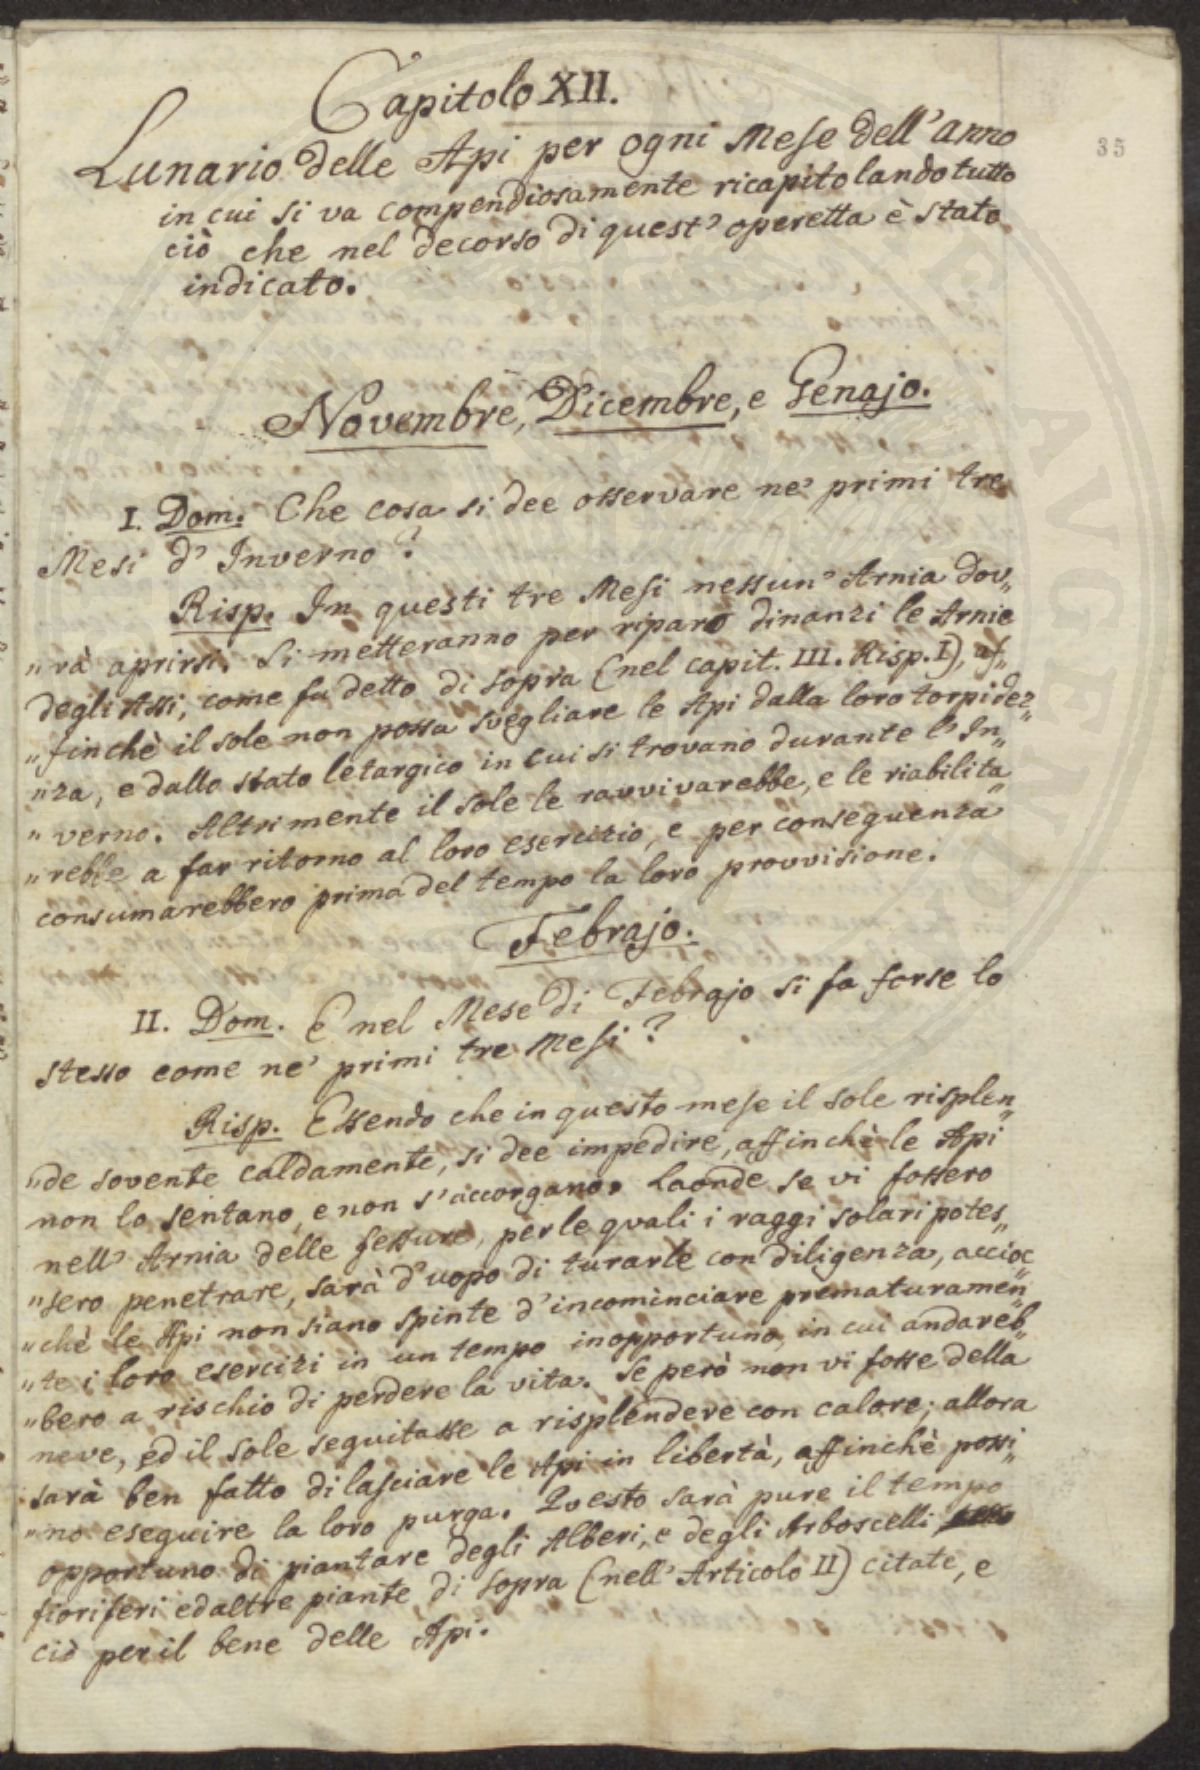 35
Capitolo XII.
Lunario delle Api per ogni Mese dell' anno
in cui si va compendiosamente ricapitolando tutto
ciò che nel decorso di quest' operetta è stato
indicato.
Novembre, Dicembre, e Genajo.
I. Dom. Che cosa si dee osservare ne' primi tre
Mesi d' Inverno?
Risp. In questi tre Mesi nessun' Arnia dov„
„rà aprirsi. Si metteranno per riparo dinanzi le Arnie
degli Assi, come fu detto di sopra (nel capit. III. Risp. I), af„
„finchè il sole non possa svegliare le Api dalla loro torpidez„
„za, e dallo stato letargico in cui si trovano durante l' In„
„verno. Altrimente il sole le ravvivarebbe, e le riabilita„
„rebbe a far ritorno al loro esercizio, e per conseguenza
consumarebbero prima del tempo la loro provvisione.
Febrajo.
II. Dom. E nel Mese di Febrajo si fa forse lo
stesso come ne' primi tre Mesi?
Risp. Essendo che in questo mese il sole risplen„
„de sovente caldamente, si dee impedire, affinchè le Api
non lo sentano, e non s' accorgano. Laonde se vi fossero
nell' Arnia delle fessure, per le quali i raggi solari potes„
„sero penetrare, sarà d' uopo di turarle con diligenza, accioc„
„chè le Api non siano spinte d' incominciare prematuramen„
„te i loro esercizi in un tempo inopportuno, in cui andareb„
„bero a rischio di perdere la vita. Se però non vi fosse della
neve, ed il sole seguitasse a risplendere con calore; allora
sarà ben fatto di lasciare le Api in libertà, affinchè possi„
„no eseguire la loro purga. Questo sarà pure il tempo
opportuno di piantare degli Alberi, e degli Arboscelli
fioriferi ed altre piante di sopra (nell' Articolo II) citate, e
ciò per il bene delle Api.